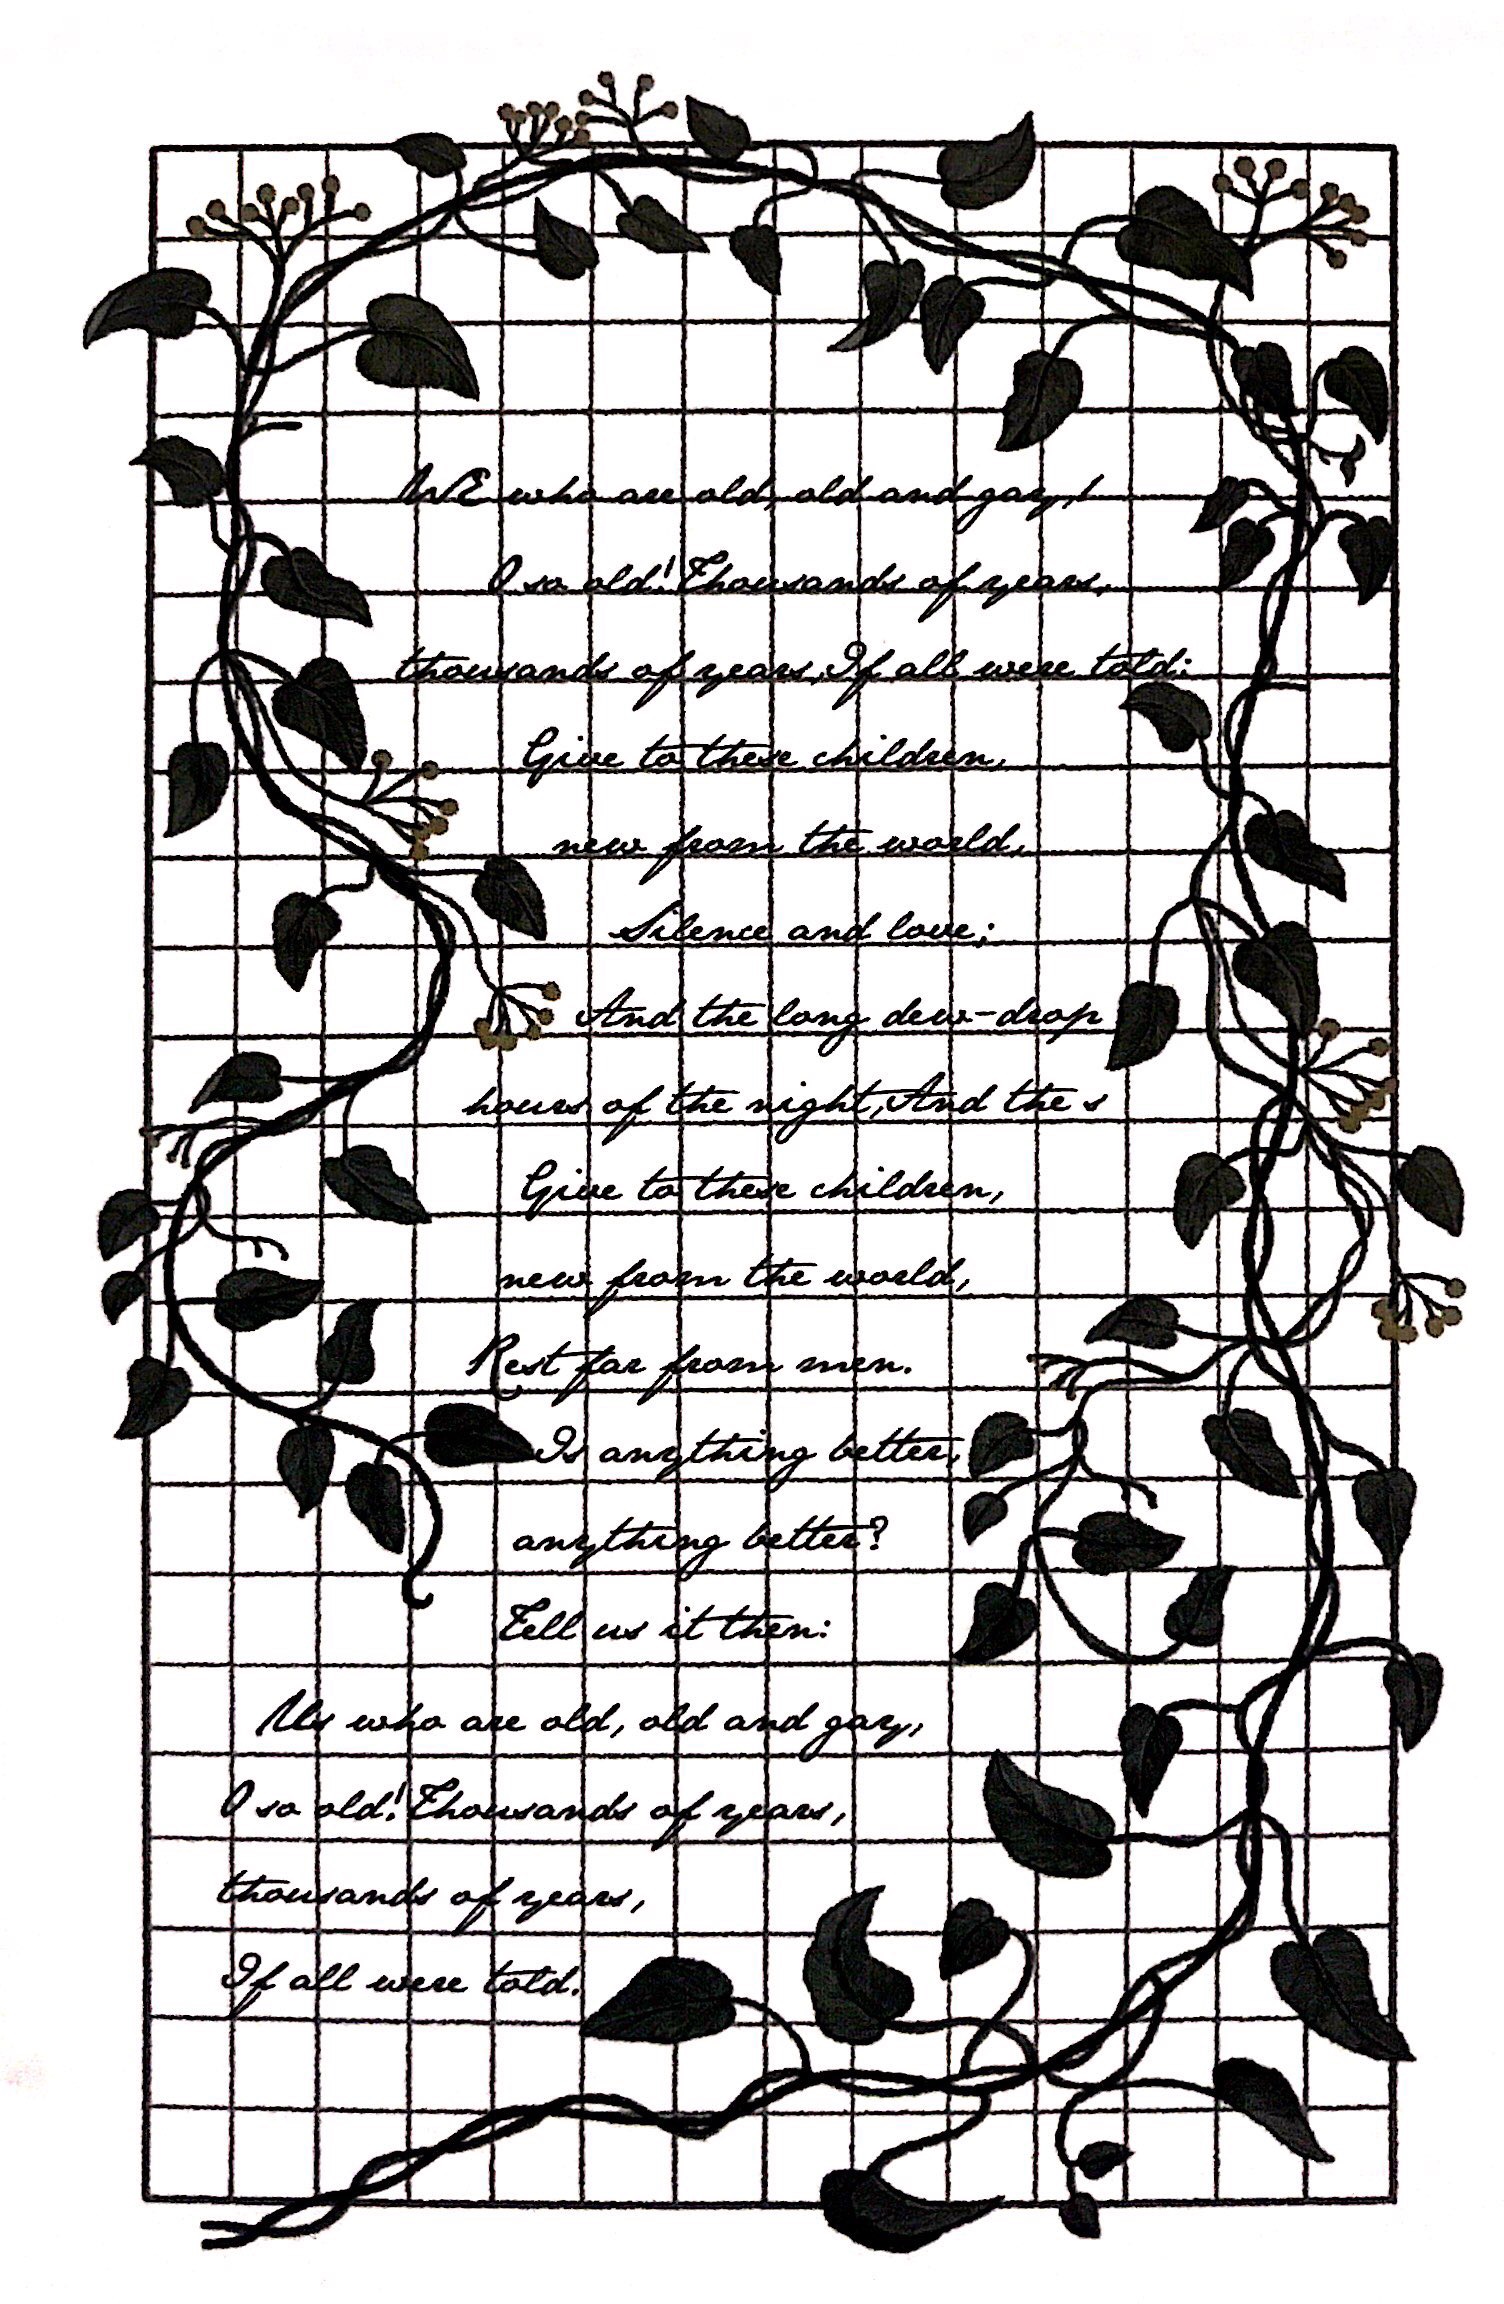 WE who are old, old and gay,!
O so old! Thousands of years,
thousands of years, If all were told:
Give to these children,
new from the world,
Silence and love;
And the long dew-drop
hours of the night, And the s
Give to these children,
new from the world,
Rest far from men.
Is anything better,
anything better?
Tell us it then:
Us who are old, old and gay,
O so old! Thousands of years,
thousands of years,
If all were told.